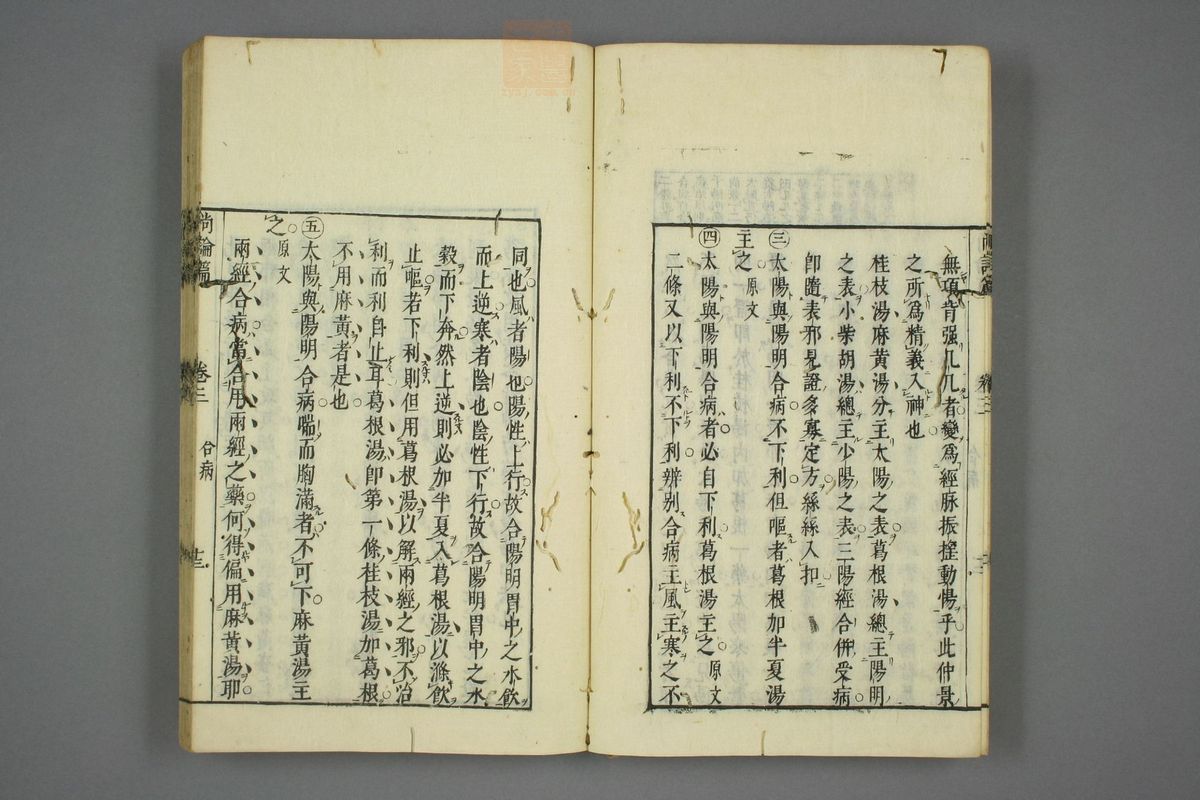 無項背强几几者變爲經脉振搖動惕乎此仲景
之所爲精義入神也
桂枝湯麻黃湯分主太陽之表葛根湯總主陽明
之表小柴胡湯總主少陽之表三陽經合併受病
卽隨表邪見證多寡定方絲絲入扣
㊂太陽與陽明合病不下利但嘔者葛根加半夏湯
主之原文
㊃太陽與陽明合病者必自下利葛根湯主之原文
二條又以下利不下利辨别合病主風主寒之不
卷三
同也風者陽也陽性上行故合陽明胃中之水飮
而上逆寒者陰也陰性下行故合陽明胃中之水
穀而下奔然上逆則必加半夏入葛根湯以滌飮
止嘔若下利則但用葛根湯以解兩經之邪不治
利而利自止耳葛根湯卽第一條桂枝湯加葛根
不用麻黃者是也
㊄太陽與陽明合病喘而胸滿者不可下麻黃湯主
之原文
兩經合病當合用兩經之藥何得偏用麻黃湯耶
尙論篇
卷三
合病
十二